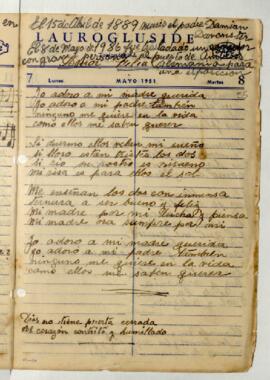 El 15 de Abril de 1889 murió el padre Damian
El 8 de Mayo de 1986 fue
LAUROGLUSIDE
con grave
7 Lunes MAYO 1951 Martes 8
Yo adoro a mi madre querida
Yo adoro a mi padre también
ninguno me quiere en la vida
como ellos me saben querer
Si duermo ellos velan mi sueño
si lloro están tristes los dos
si río su rostro es risueño
mi risa es para ellos el sol
Me enseñan los dos con inmensa
ternura a ser bueno y feliz
Mi padre por mi lucha y piensa
Mi madre ora siempre por mi
Yo adoro a mi madre querida
yo adoro a mi padre también
ninguno me quiere en la vida
como ellos me saben querer
Dios no tiene puerta cerrada
al corazón contrito y humillado